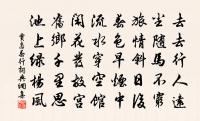 去去行人遠
塵隨馬不窮
旅情斜日後
春色早煙中
流水穿空館
閑花發故宮
舊鄉千里思
池上綠楊風